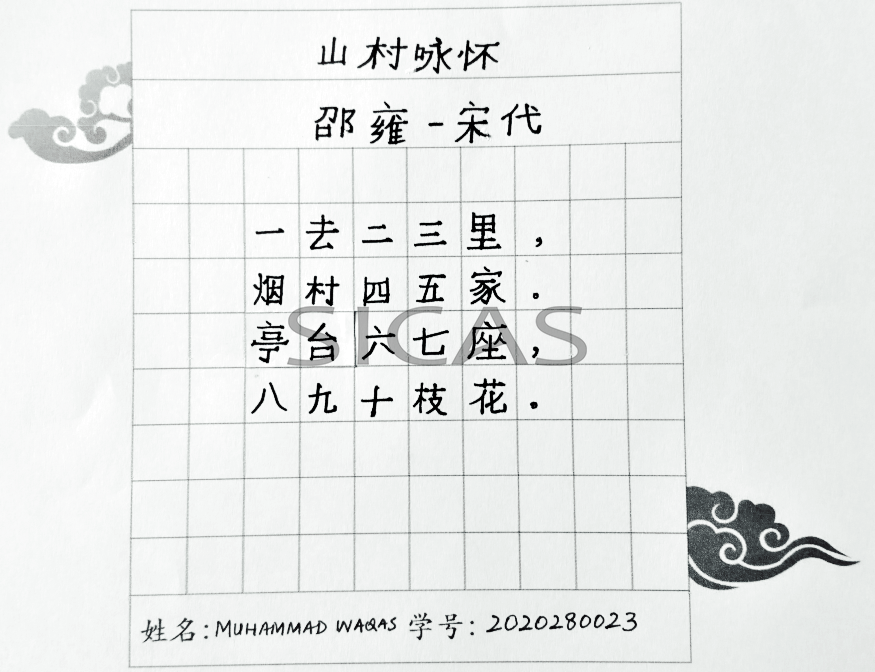 山村咏怀
邵雍-宋代
一去二三里，
烟村四五家。
亭台六七座，
八九十枝花.
SICAS
姓名:MUHAMMAD WAQAS 学号: 2020280023